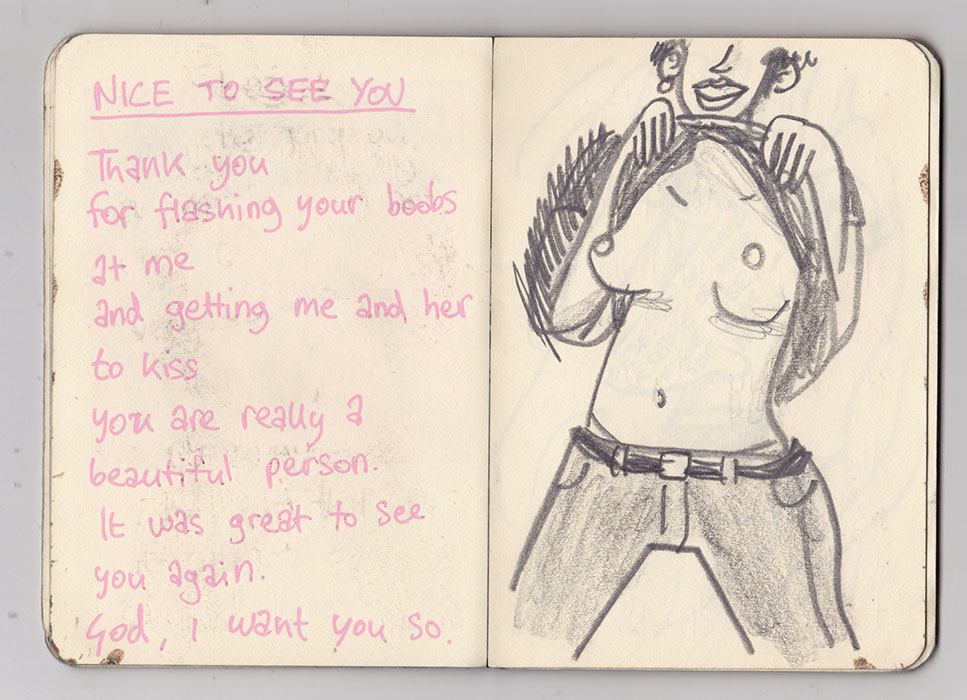 NICE TO SEE YOU
Thank you
for flashing your boobs
at me
and getting me and her
to kiss
you are really a
beautiful person.
It was great to see
you again.
God, I want you so.